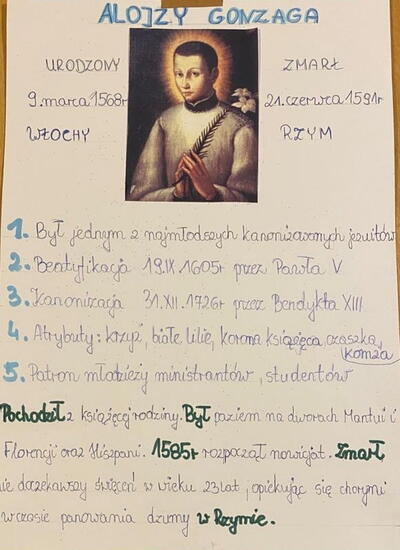 ALOJZY GONZAGA
URODZONY
ZMARŁ
9.marca 1568r
21.czerwca 1591r
WŁOCHY
RZYM
1. Był jednym z najmłodszych kanonizowanych jezuitów
2. Beatyfikacja 19.IX.1605r przez Pawła V
3. Kanonizacja 31.XII.1726r przez Bendykta XIII
4. Atrybuty: krzyż, białe lilie, korona książęca, czaszka,
komża
5. Patron młodzieży ministrantów, studentów
Pochodził z książęcej rodziny. Był paziem na dworach Mantui i
Florencji oraz Hiszpani. 1585r rozpoczął nowicjat. Zmarł
nie doczekawszy święceń w wieku 23 lat, opiekując się chorymi
w czasie panowania dżumy w Rzymie.